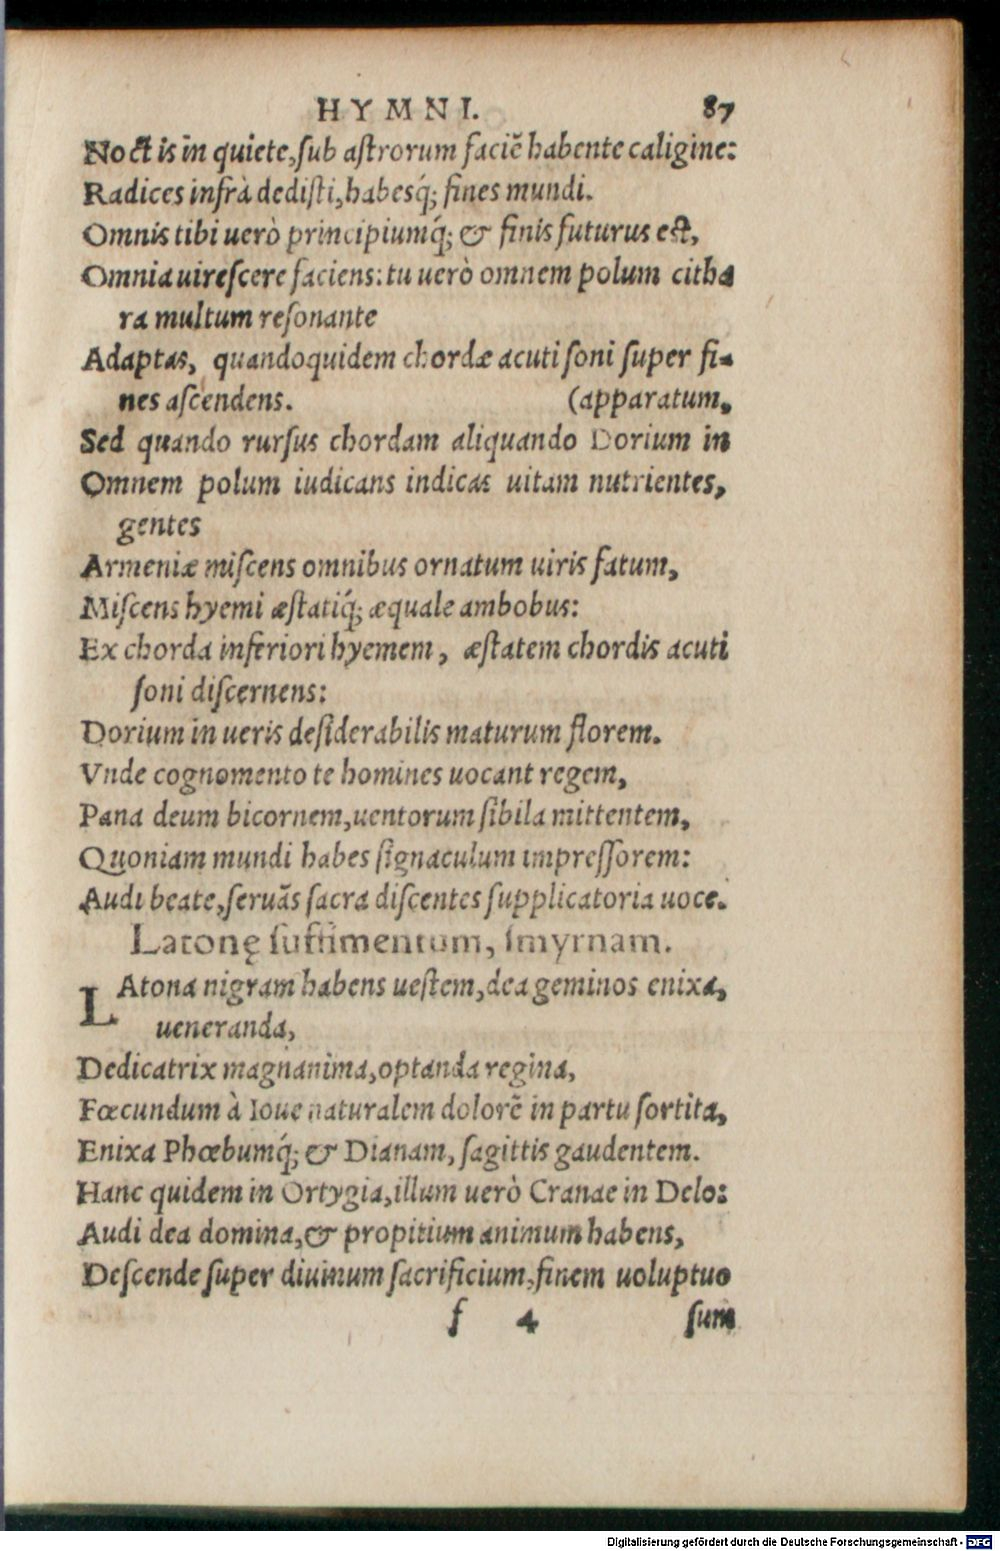 HYMNI. 87
Noctis in quiete, sub astrorum faciē habente caligine:
Radices infrà dedisti, habesq́; fines mundi.
Omnis tibi uerò principiumq́; & finis futurus est,
Omnia uirescere faciens: tu uerò omnem polum citha
ra multum resonante
Adaptas, quandoquidem chordæ acuti soni super fi-
nes ascendens. (apparatum,
Sed quando rursus chordam aliquando Dorium in
Omnem polum iudicans indicas uitam nutrientes,
gentes
Armeniæ miscens omnibus ornatum uiris fatum,
Miscens hyemi æstatiq́; æquale ambobus:
Ex chorda inferiori hyemem, æstatem chordis acuti
soni discernens:
Dorium in ueris desiderabilis maturum florem.
Vnde cognomento te homines uocant regem,
Pana deum bicornem, uentorum sibila mittentem,
Quoniam mundi habes signaculum impressorem:
Audi beate, seruãs sacra discentes supplicatoria uoce.
Latonę suffimentum, smyrnam.
LAtona nigram habens uestem, dea geminos enixa,
ueneranda,
Dedicatrix magnanima, optanda regina,
Fœcundum à Ioue naturalem dolorē in partu sortita,
Enixa Phœbumq́; & Dianam, sagittis gaudentem.
Hanc quidem in Ortygia, illum uerò Cranae in Delo:
Audi dea domina, & propitium animum habens,
Descende super diuinum sacrificium, finem uoluptuo
f 4 sum
Digitalisierung gefördert durch die Deutsche Forschungsgemeinschaft - DFG